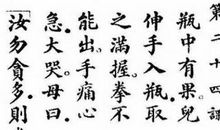 第二十四課
瓶中有果兒
伸手入瓶取
之滿握拳不
能出。手痛心
急。大哭。母曰。
「汝勿貪多。則